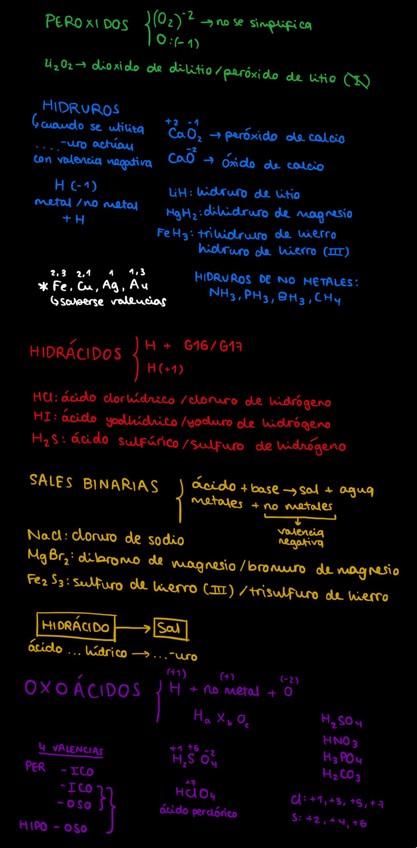 PEROXIDOS { (O₂)⁻² → no se simplifica
O: (-1)
Li₂O₂ → dioxido de dilitio / peróxido de litio (I)
HIDRUROS
↳ cuando se utiliza
....-uro actúan
con valencia negativa
H (-1)
metal / no metal
+ H
+2 -1
CaO₂ → peróxido de calcio
-2
CaO → óxido de calcio
LiH: hidruro de litio
MgH₂: dihidruro de magnesio
FeH₃: trihidruro de hierro
hidruro de hierro (III)
2,3 2,1 1 1,3
* Fe, Cu, Ag, Au
↳ saberse valencias
HIDRUROS DE NO METALES:
NH₃, PH₃, BH₃, CH₄
HIDRÁCIDOS { H + G16/G17
H(+1)
HCl: ácido clorhídrico / cloruro de hidrógeno
HI: ácido yodhídrico / yoduro de hidrógeno
H₂S: ácido sulfúrico / sulfuro de hidrógeno
SALES BINARIAS { ácido + base → sal + agua
metales + no metales
valencia
negativa
NaCl: cloruro de sodio
MgBr₂: dibromo de magnesio / bromuro de magnesio
Fe₂S₃: sulfuro de hierro (III) / trisulfuro de hierro
HIDRÁCIDO → Sal
ácido ... hídrico → ...-uro
(+1) (+) (-2)
OXOÁCIDOS { H + no metal + O
Hₐ X_b O_c
H₂SO₄
HNO₃
H₃PO₄
H₂CO₃
4 VALENCIAS
PER -ICO
-ICO
-OSO
HIPO -OSO
+1 +6 -2
H₂SO₄
+7
HClO₄
ácido perclórico
Cl: +1, +3, +5, +7
S: +2, +4, +6